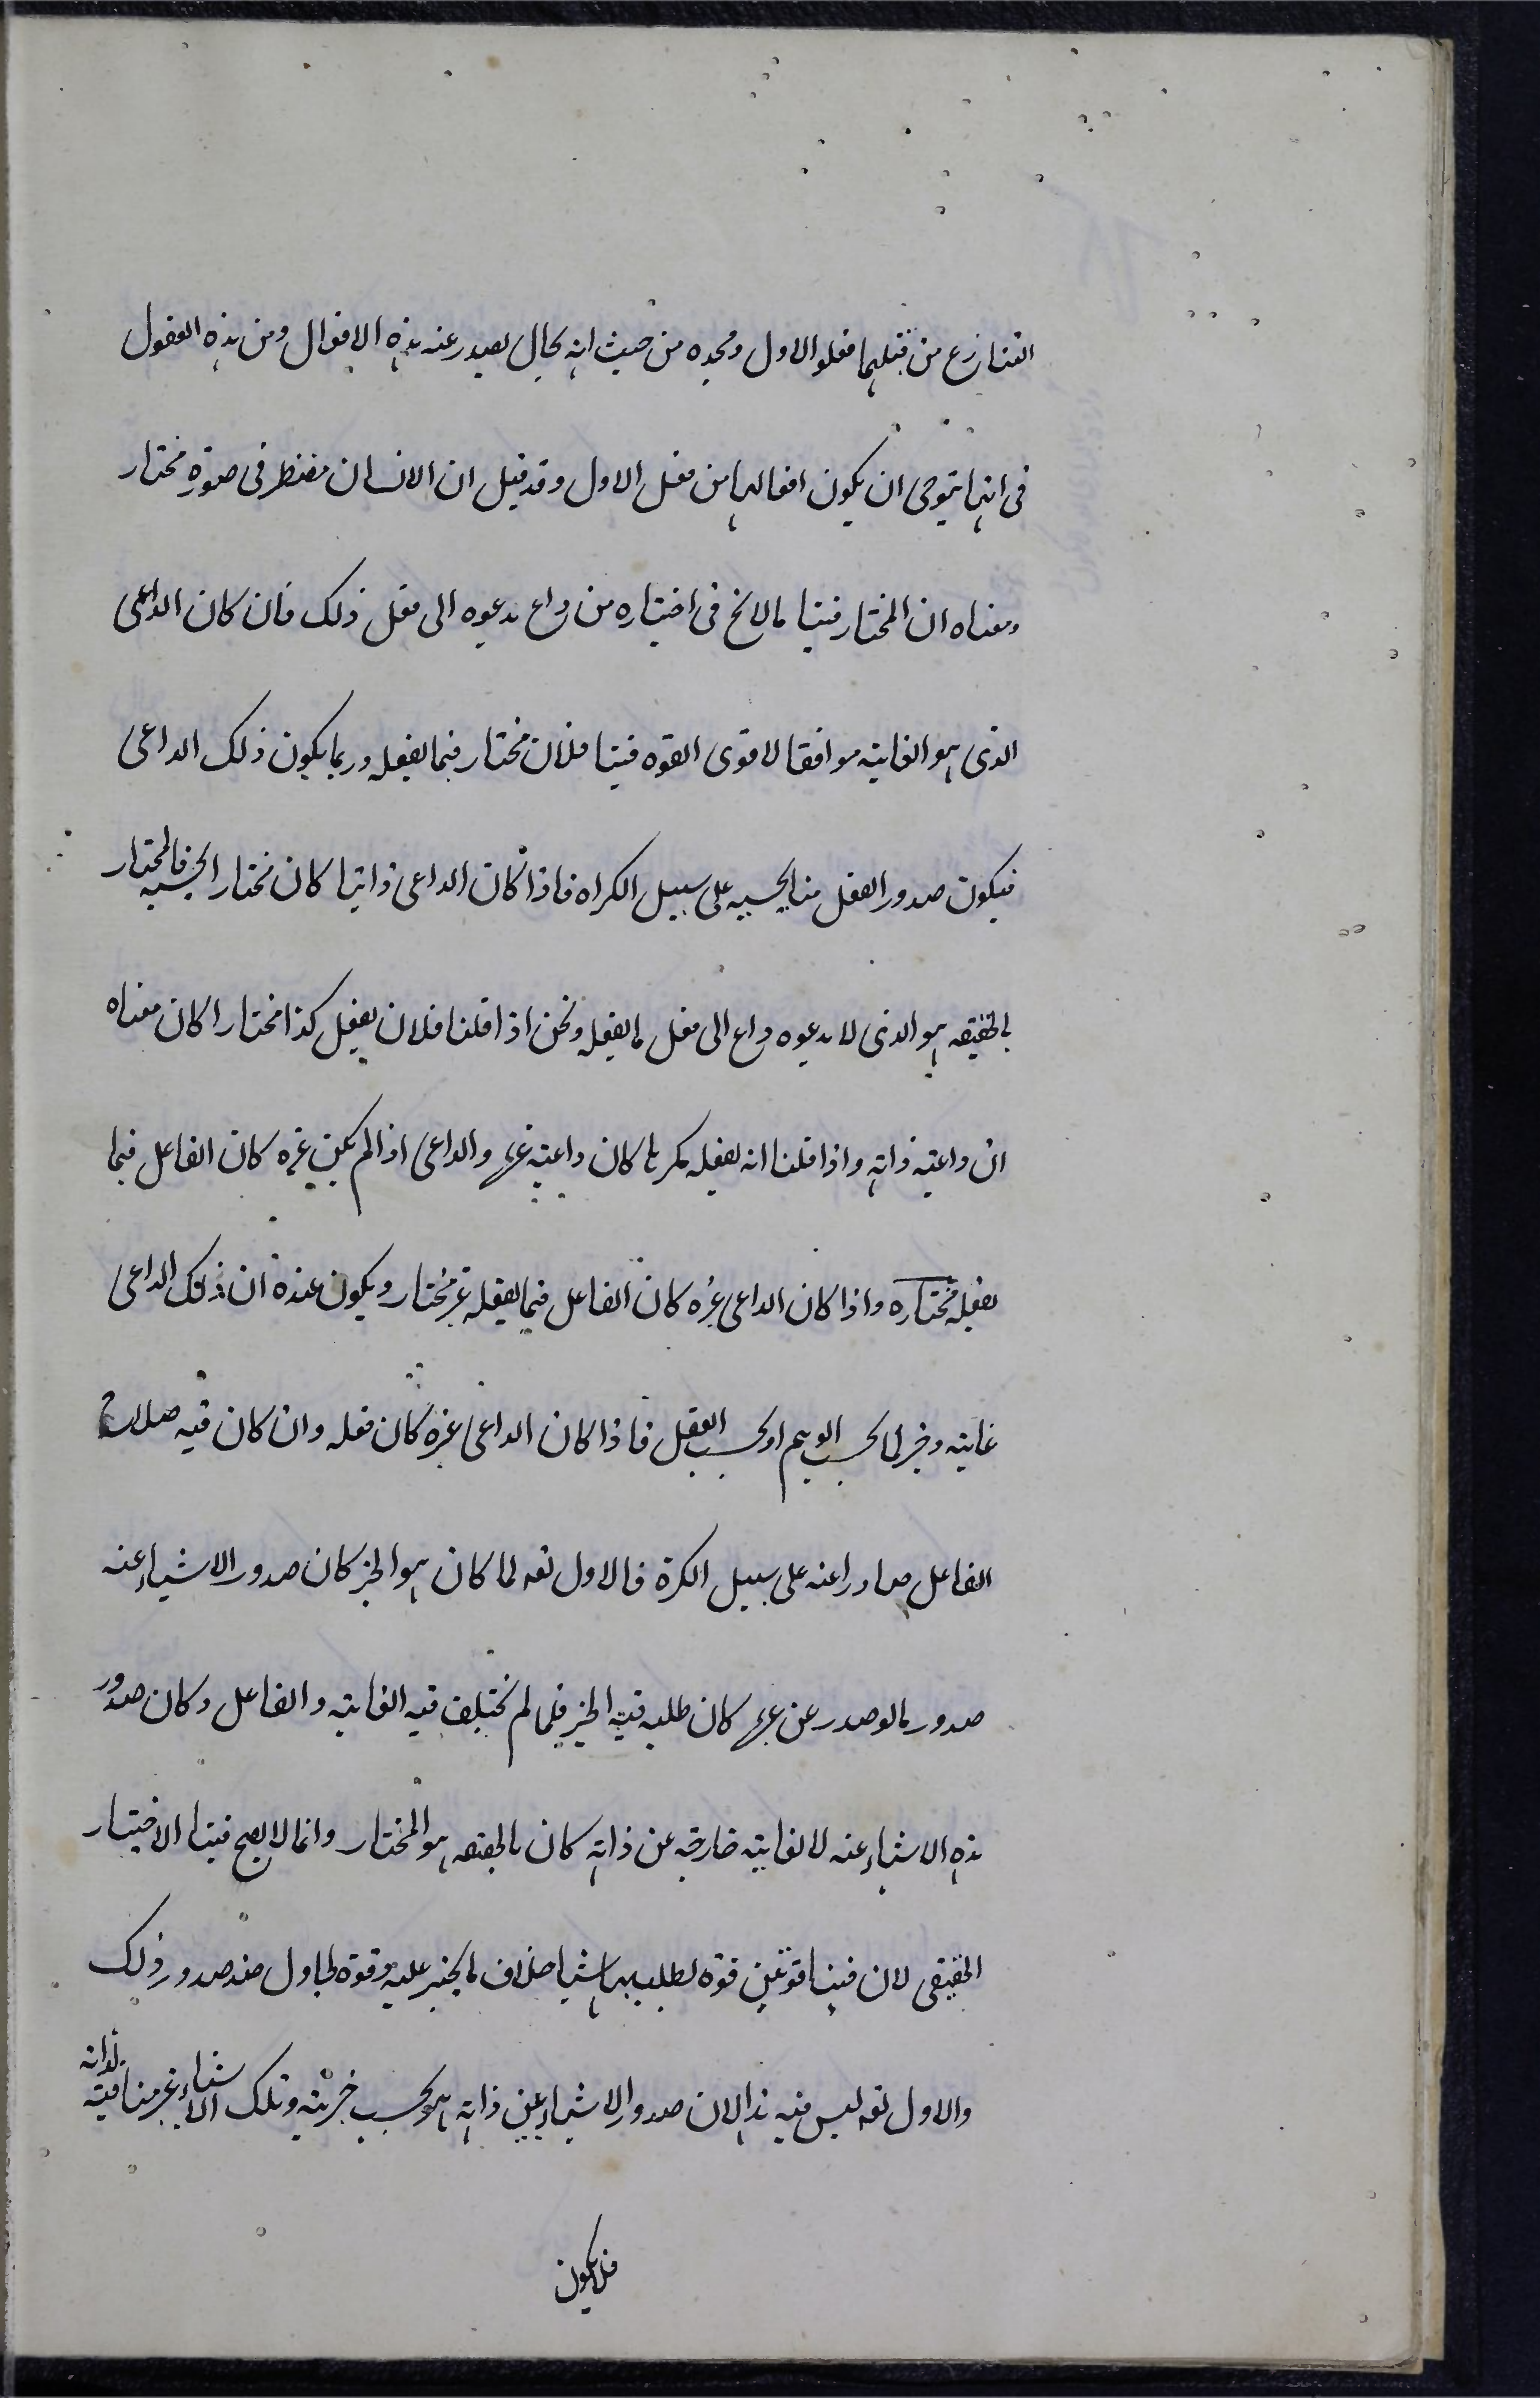 التنازع من قبلهما فعلو الاول ومجده من حيث انه بحال يصدر عنه هذه الافعال ومن هذه العقول
فى انها يتوخى ان يكون افعالها من فعل الاول وقد قيل ان الانسان مضطر فى صورة مختار
ومعناه ان المختار فينا لا يخ فى اختياره من داع يدعوه الى فعل ذلك فان كان الداعى
الذى هو الغاية موافقا لاقوى القوه فينا فلان مختار فيما يفعله وربما يكون ذلك الداعى
فيكون صدور الفعل منا بحسبه على سبيل الكراه فاذا كان الداعى ذاتيا كان مختارا بحسبه فالمختار
بالحقيقه هو الذى لا يدعوه داع الى فعل ما يفعله ونحن اذا قلنا فلان يفعل كذا مختارا كان معناه
ان داعيه ذاته واذا قلنا انه يفعله مكرها كان داعيه غيره والداعى اذا لم يكن غيره كان الفاعل فيما
يفعله مختاره واذا كان الداعى غيره كان الفاعل فيما يفعله غير مختار ويكون عنده ان ذلك الداعى
غاية وخير اما بحسب الوهم او بحسب العقل فاذا كان الداعى غيره كان فعله وان كان فيه صلاح
الفاعل صادرا عنه على سبيل الكره فالاول تعه لما كان هو الخير كان صدور الاشياء عنه
صدور ما لو صدر عن غيره كان طلبه فيه الخير فلما لم تختلف فيه الغاية والفاعل وكان صدور
هذه الاشياء عنه لا لغاية خارجه عن ذاته كان بالحقيقه هو المختار وانما لا يصح فينا الاختيار
الحقيقى لان فينا قوتين قوه تطلب بها شيا خلاف ما يخبر عليه وقوه تحاول ضد صدور ذلك
والاول تعه ليس فيه هذا لان صدور الاشياء عن ذاته هو بحسب خيريته وتلك الاشياء غير منافية لذاته
فلا يكون